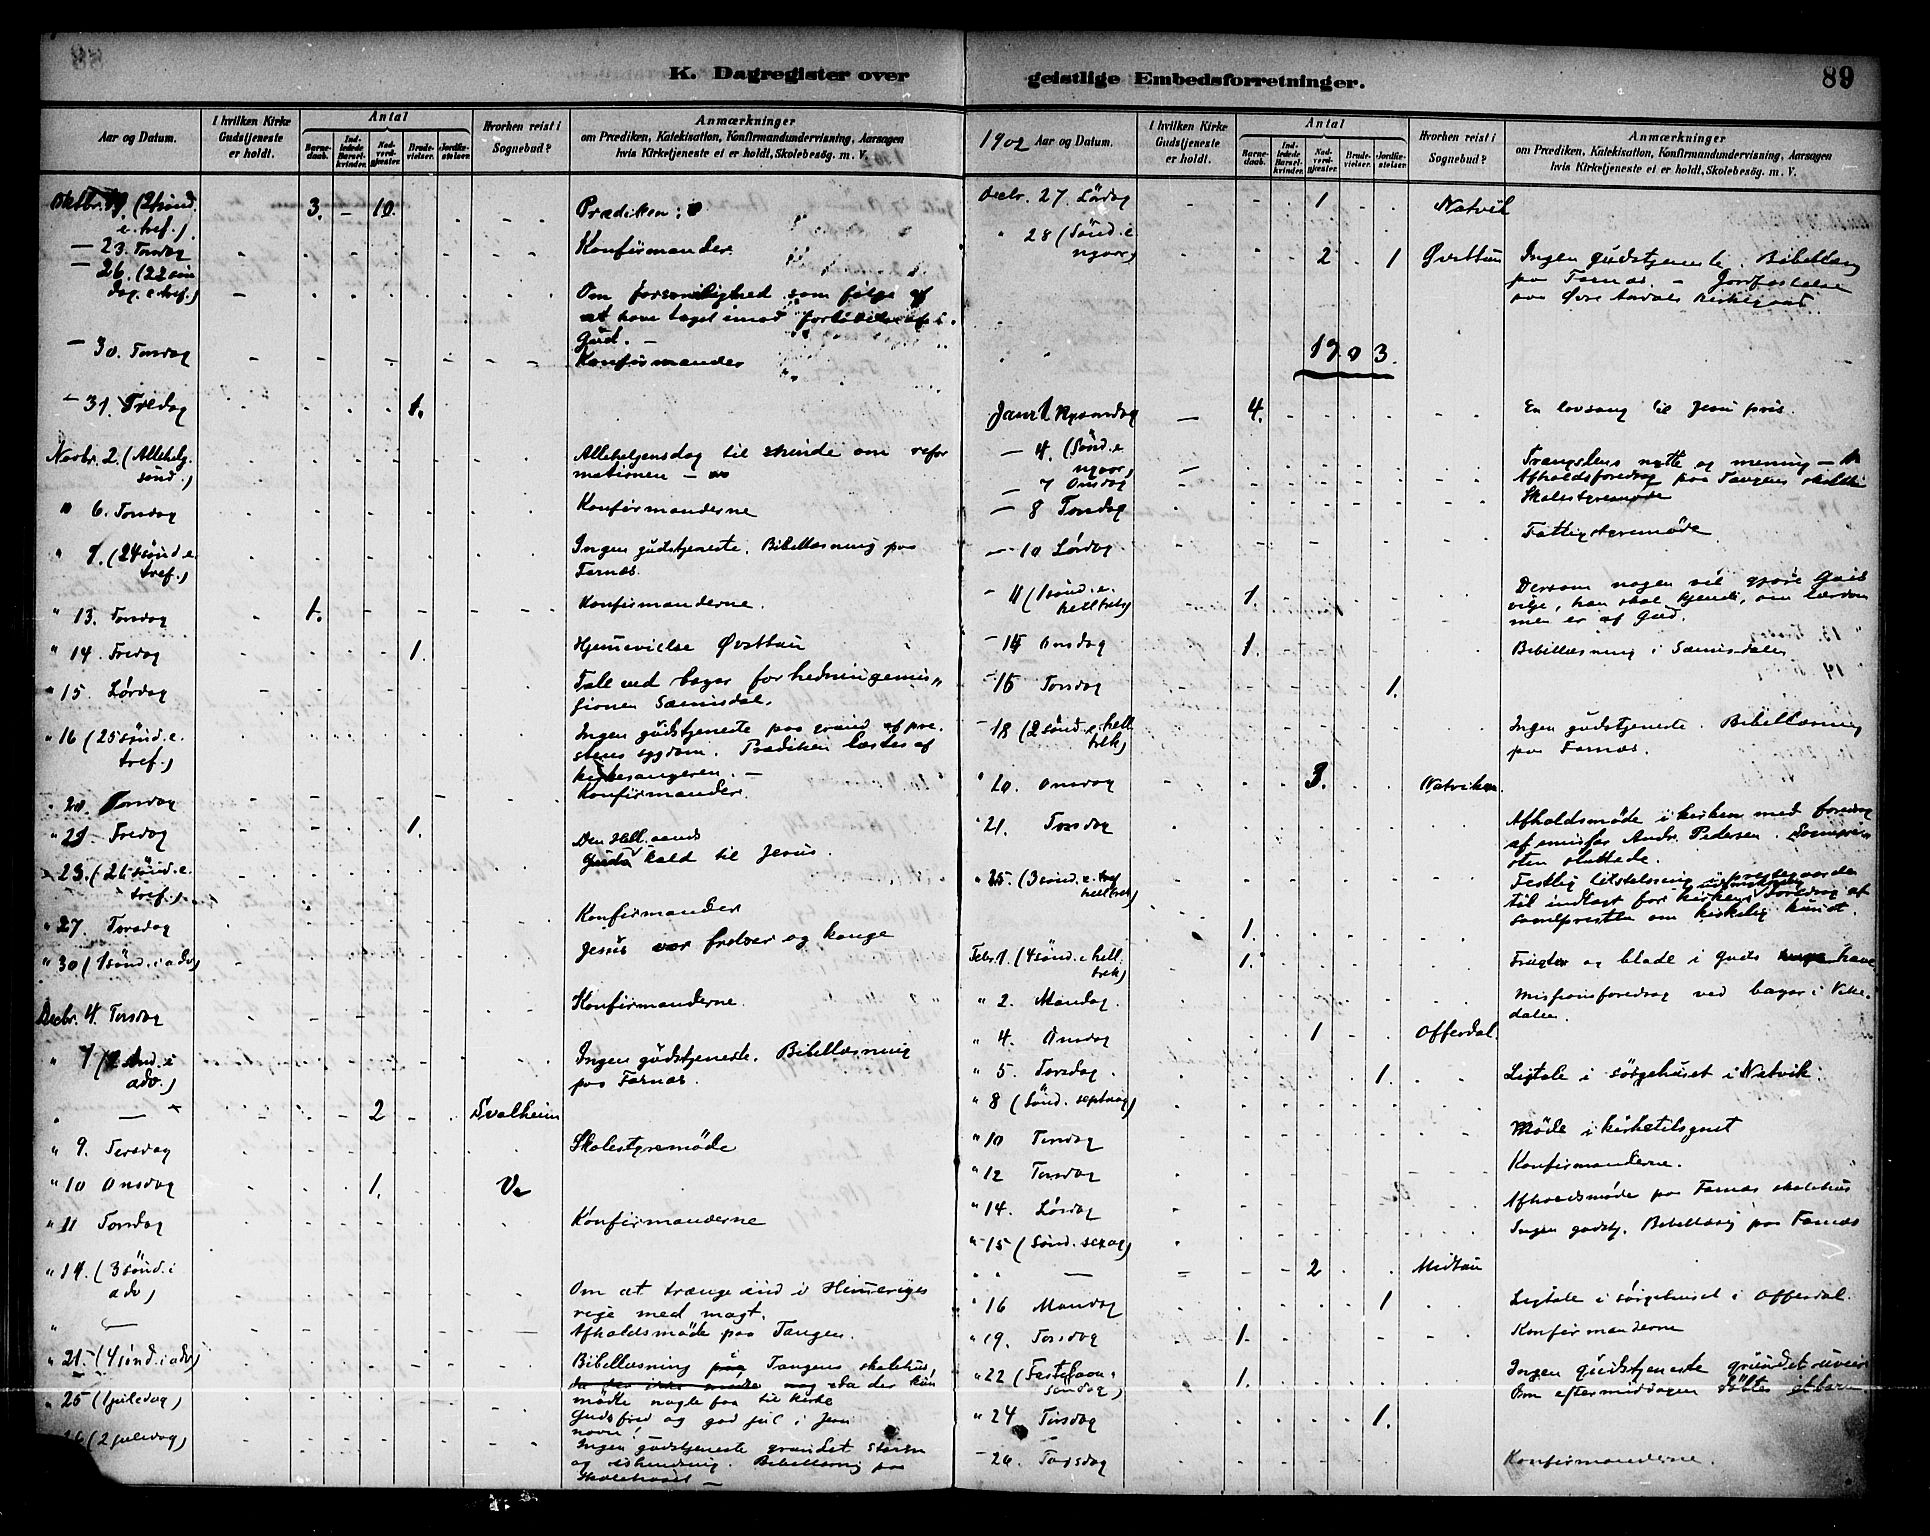 K. Dagregister over
Aar og Datum.
I hvilken Kirke Gudstjeneste er holdt.
Antal
Barnedaab.
Indledede Barselkvinder.
Nadverdgjester.
Brudevielser.
Jordfæstelser.
Hvorhen reist i Sognebud?
Anmærkninger
om Prædiken, Katekisation, Konfirmandundervisning, Aarsagen
hvis Kirketjeneste ei er holdt, Skolebesög. m. V.
Oktbr. 19. (21 sönd. e. tref.) 3. - 10. Prædiken:
- 23. Torsdag Konfirmander
- 26. (22 söndag. e. tref.) Om forsonlighed som følge af
at have taget imod
Gud. -
- 30. Torsdag Konfirmander
- 31. Fredag 1.
Novbr. 2. (Allehelg. sönd.) Allehelgensdag til minde om refor
mationen -
" 6. Torsdag Konfirmanderne
" 9. (24 sönd. e. tref.) Ingen gudstjeneste. Bibellæsning paa
Farnæs.
" 13. Torsdag 1. Konfirmanderne.
" 14. Fredag 1. Hjemmevielse Øvsttun
" 15. Lørdag Tale ved bazar for hedningemis-
sionen Sæmsdal.
" 16 (25 sönd. e. tref.) Ingen gudstjeneste paa grund af pre-
stens sygdom. Prædiken læstes af
kirkesangeren. -
" 20. Torsdag Konfirmander.
" 21 Fredag 1.
" 23. (26 sönd. e. tref.) Den Hell. aands
Guds kald til Jesus.
" 27. Torsdag Konfirmander
" 30 (1 sönd. i adv) Jesus vor frelser og konge
Decbr. 4. Torsdag Konfirmanderne.
" 7 (2 sönd. i adv.) Ingen gudstjeneste. Bibellæsning
paa Farnæs.
" - 2 Svalheim
" 9. Tirsdag Skolestyremöde
" 10 Onsdag 1.
" 11 Torsdag Konfirmanderne
" 14. (3 sönd. i adv) Om at trænge ind i Himmeriges
rige med magt.
" - Afholdsmöde paa Tangen.
" 21 - (4 sönd. i adv) Bibellæsning paa Tangens skolehus,
da der kun
mödte nogle faa til kirke
" 25 (1 juledag) Gudsfred og god jul i Jesu
navn!
26 (2 juledag) Ingen gudstjeneste grundet storm
Bibellæsnig paa
Skolehuset -
geistlige Embedsforretninger.
89
1902 Aar og Datum.
I hvilken Kirke Gudstjeneste er holdt.
Antal
Barnedaab.
Indledede Barselkvinder.
Nadverdgjester.
Brudevielser.
Jordfæstelser.
Hvorhen reist i Sognebud?
Anmærkninger
om Prædiken, Katekisation, Konfirmandundervisning, Aarsagen
hvis Kirketjeneste ei er holdt, Skolebesög. m. V.
Decbr. 27. Lördag 1 Natvik
" 28 (Sönd. e nyaar) 2 1 Øvsttun Ingen gudstjeneste. Bibellæsng
paa Farnæs. - Jordfæstelse
paa Øvre Aardals kirkegaard
1903.
Janr 1 Nyaarsdag 4. En lovsang til Jesu pris.
- 4. (Sönd. e nyaar) Trængslens nytte og mening -
- 7 Onsdag Afholdsforedrag paa Tangens skolehus
- 8 Torsdag Skolestyremöde
- 10 Lördag Fattigstyremöde
- 11 (1 sönd. e. helltrek) 1. Dersom nogen vil gjöre Guds
vilje, han skal kjende, om lærdom
men er af Gud.
- 14 Onsdag 1. Bibellæsning i Sæmsdalen
- 15 Torsdag 1.
- 18 (2 sönd. e. hell trek) Ingen gudstjeneste. Bibellæsning
paa Farnæs.
" 20. Onsdag 3. Natviken.
" 21. Torsdag Afholdsmöde i kirken med foredrag
af emissær Andr. Pedersen. Sognepre-
sten sluttede.
" 25. (3 sönd. e. helltrek) 1. Festlig tilstelning i prestegaarden
til indtægt for kirkens Foredrag af
sognepresten om kirkelig kunst.
Febr. 1. (4 sönd. e hell. trek) 1. Frugter og blade i Guds have
" 2. Mandag. Missionsforedrag ved bazar i Vike-
dalen.
" 4. Onsdag 1 Offerdal.
" 5. Torsdag. 1. Ligtale i sörgehuset i Natvik.
" 8 (Sönd. septuag)
" 10 Tirsdag Möde i kirketilsynet
" 12 Torsdag Konfirmanderne.
" 14. Lördag Afholdsmöde paa Farnæs skolehus
" 15 (Sönd. sexag) Ingen gudstj. Bibellæsng paa Farnæs
" " - 2 Midtun
" 16 Mandag 1 Ligtale i sörgehuset i Offerdal.
" 19. Torsdag 1. Konfirmanderne
" 22 (Fastelavns söndag) 1. Ingen gudstjeneste grundet uveir
Om eftermiddagen döbtes et barn
" 24 Tirsdag 1.
- 26 Torsdag Konfirmanderne.